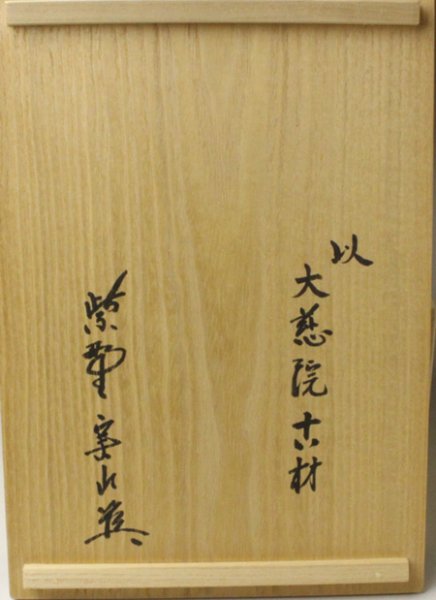 以
大慈院古材
紫野実山